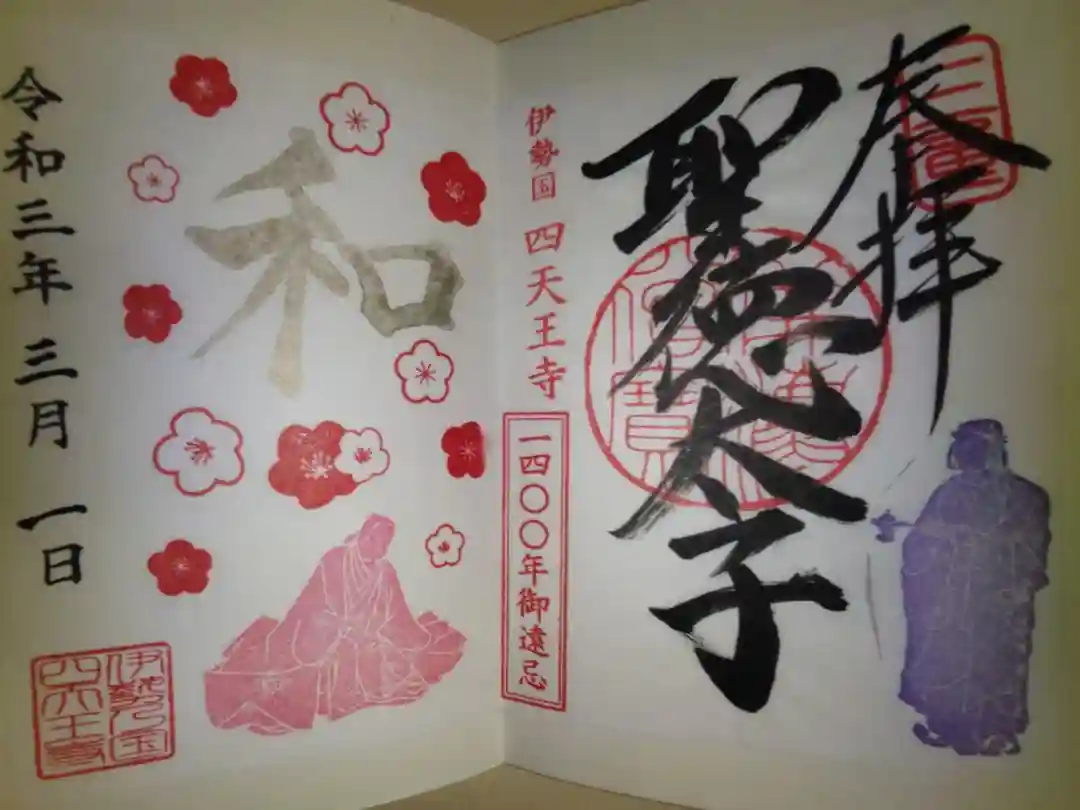 奉拝
聖徳太子
三寳
佛法僧寳
伊勢国 四天王寺
一四〇〇年御遠忌
和
令和三年 三月 一日
伊勢国
四天王寺